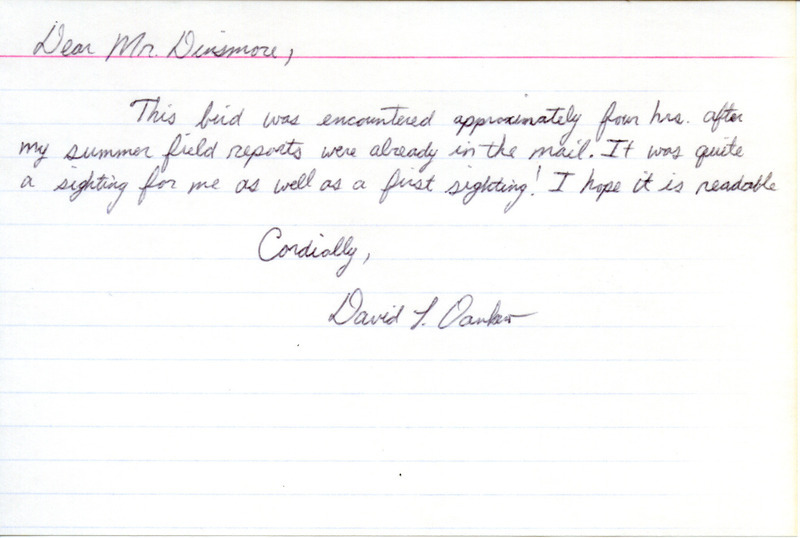 Dear Mr. Dinsmore,
This bird was encountered approximately four hrs. after
my summer field reports were already in the mail. It was quite
a sighting for me as well as a first sighting! I hope it is readable
Cordially,
David L.